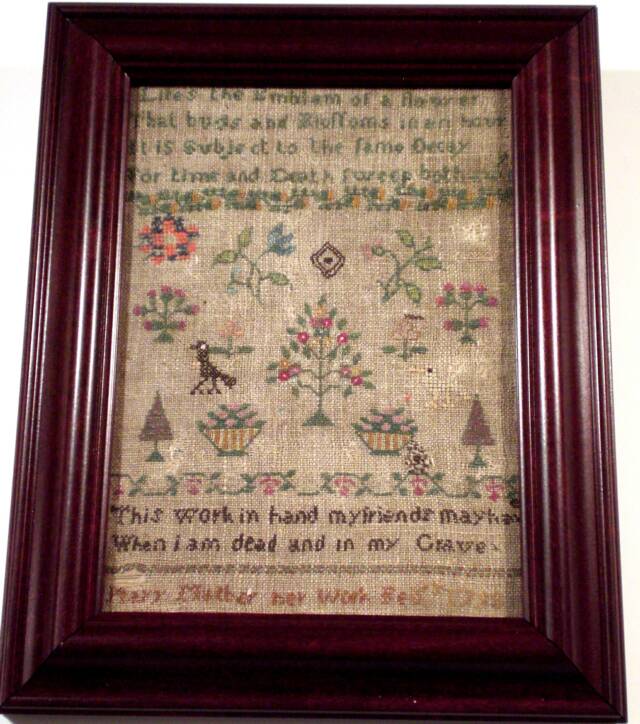 Life's the Emblem of a flower
That buds and Blossoms in an hour
it is Subject to the same Decay
For time and Death sweep both
This work in hand my friends may hav
When i am dead and in my Grave
Mary her Work